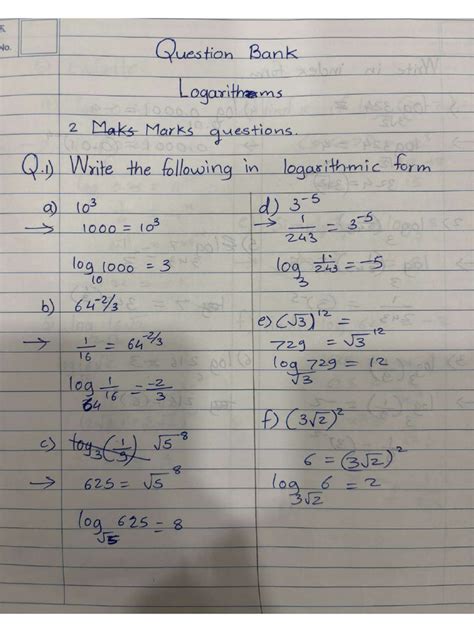 No.
Question Bank
Logarithms
2 Maks Marks questions.
Q.1) Write the following in logarithmic form
a) 10³
→ 1000 = 10³
log₁₀ 1000 = 3
b) 64^-2/3
→ 1/16 = 64^-2/3
log₆₄ 1/16 = -2/3
c) log₃(1/9) √5⁸
→ 625 = √5⁸
log_√5 625 = 8
d) 3⁻⁵
→ 1/243 = 3⁻⁵
log₃ 1/243 = -5
e) (√3)¹² =
729 = √3¹²
log_√3 729 = 12
f) (3√2)²
6 = (3√2)²
log_3√2 6 = 2